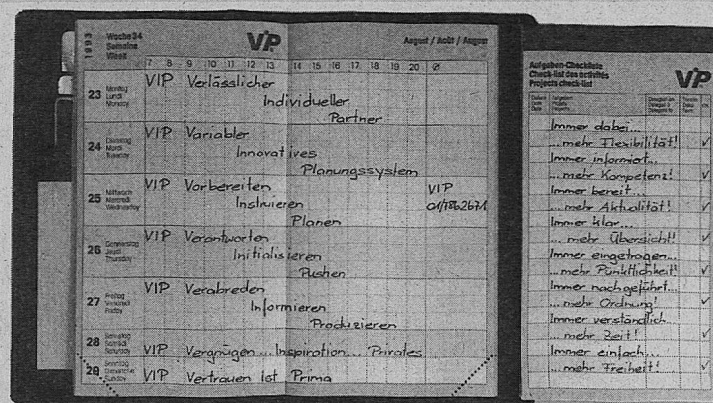 1993
Woche 34
Semaine
Week
VIP
August / Août / August
7 8 9 10 11 12 13 14 15 16 17 18 19 20 Ø
23 Montag
Lundi
Monday
VIP Verlässlicher
Individueller
Partner
24 Dienstag
Mardi
Tuesday
VIP Variabler
Innovatives
Planungssystem
25 Mittwoch
Mercredi
Wednesday
VIP Vorbereiten
Instruieren
Planen
VIP
26 Donnerstag
Jeudi
Thursday
VIP Verantworten
Initialisieren
Pushen
27 Freitag
Vendredi
Friday
VIP Verabreden
Informieren
Produzieren
28 Samstag
Samedi
Saturday
VIP Vergnügen... Inspiration... Privates
29 Sonntag
Dimanche
Sunday
VIP Vertrauen Ist Prima
Aufgaben-Checkliste
Check-list des activités
Projects check-list
VIP
Immer dabei...
...mehr Flexibilität! ✓
Immer informiert...
...mehr Kompetenz! ✓
Immer bereit...
...mehr Aktualität! ✓
Immer klar...
...mehr Übersicht! ✓
Immer eingetragen...
...mehr Pünktlichkeit! ✓
Immer nachgeführt...
...mehr Ordnung! ✓
Immer verständlich...
...mehr Zeit! ✓
Immer einfach...
...mehr Freiheit! ✓